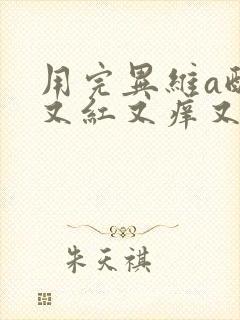 用完異維a
又紅又痒又
朱天祺